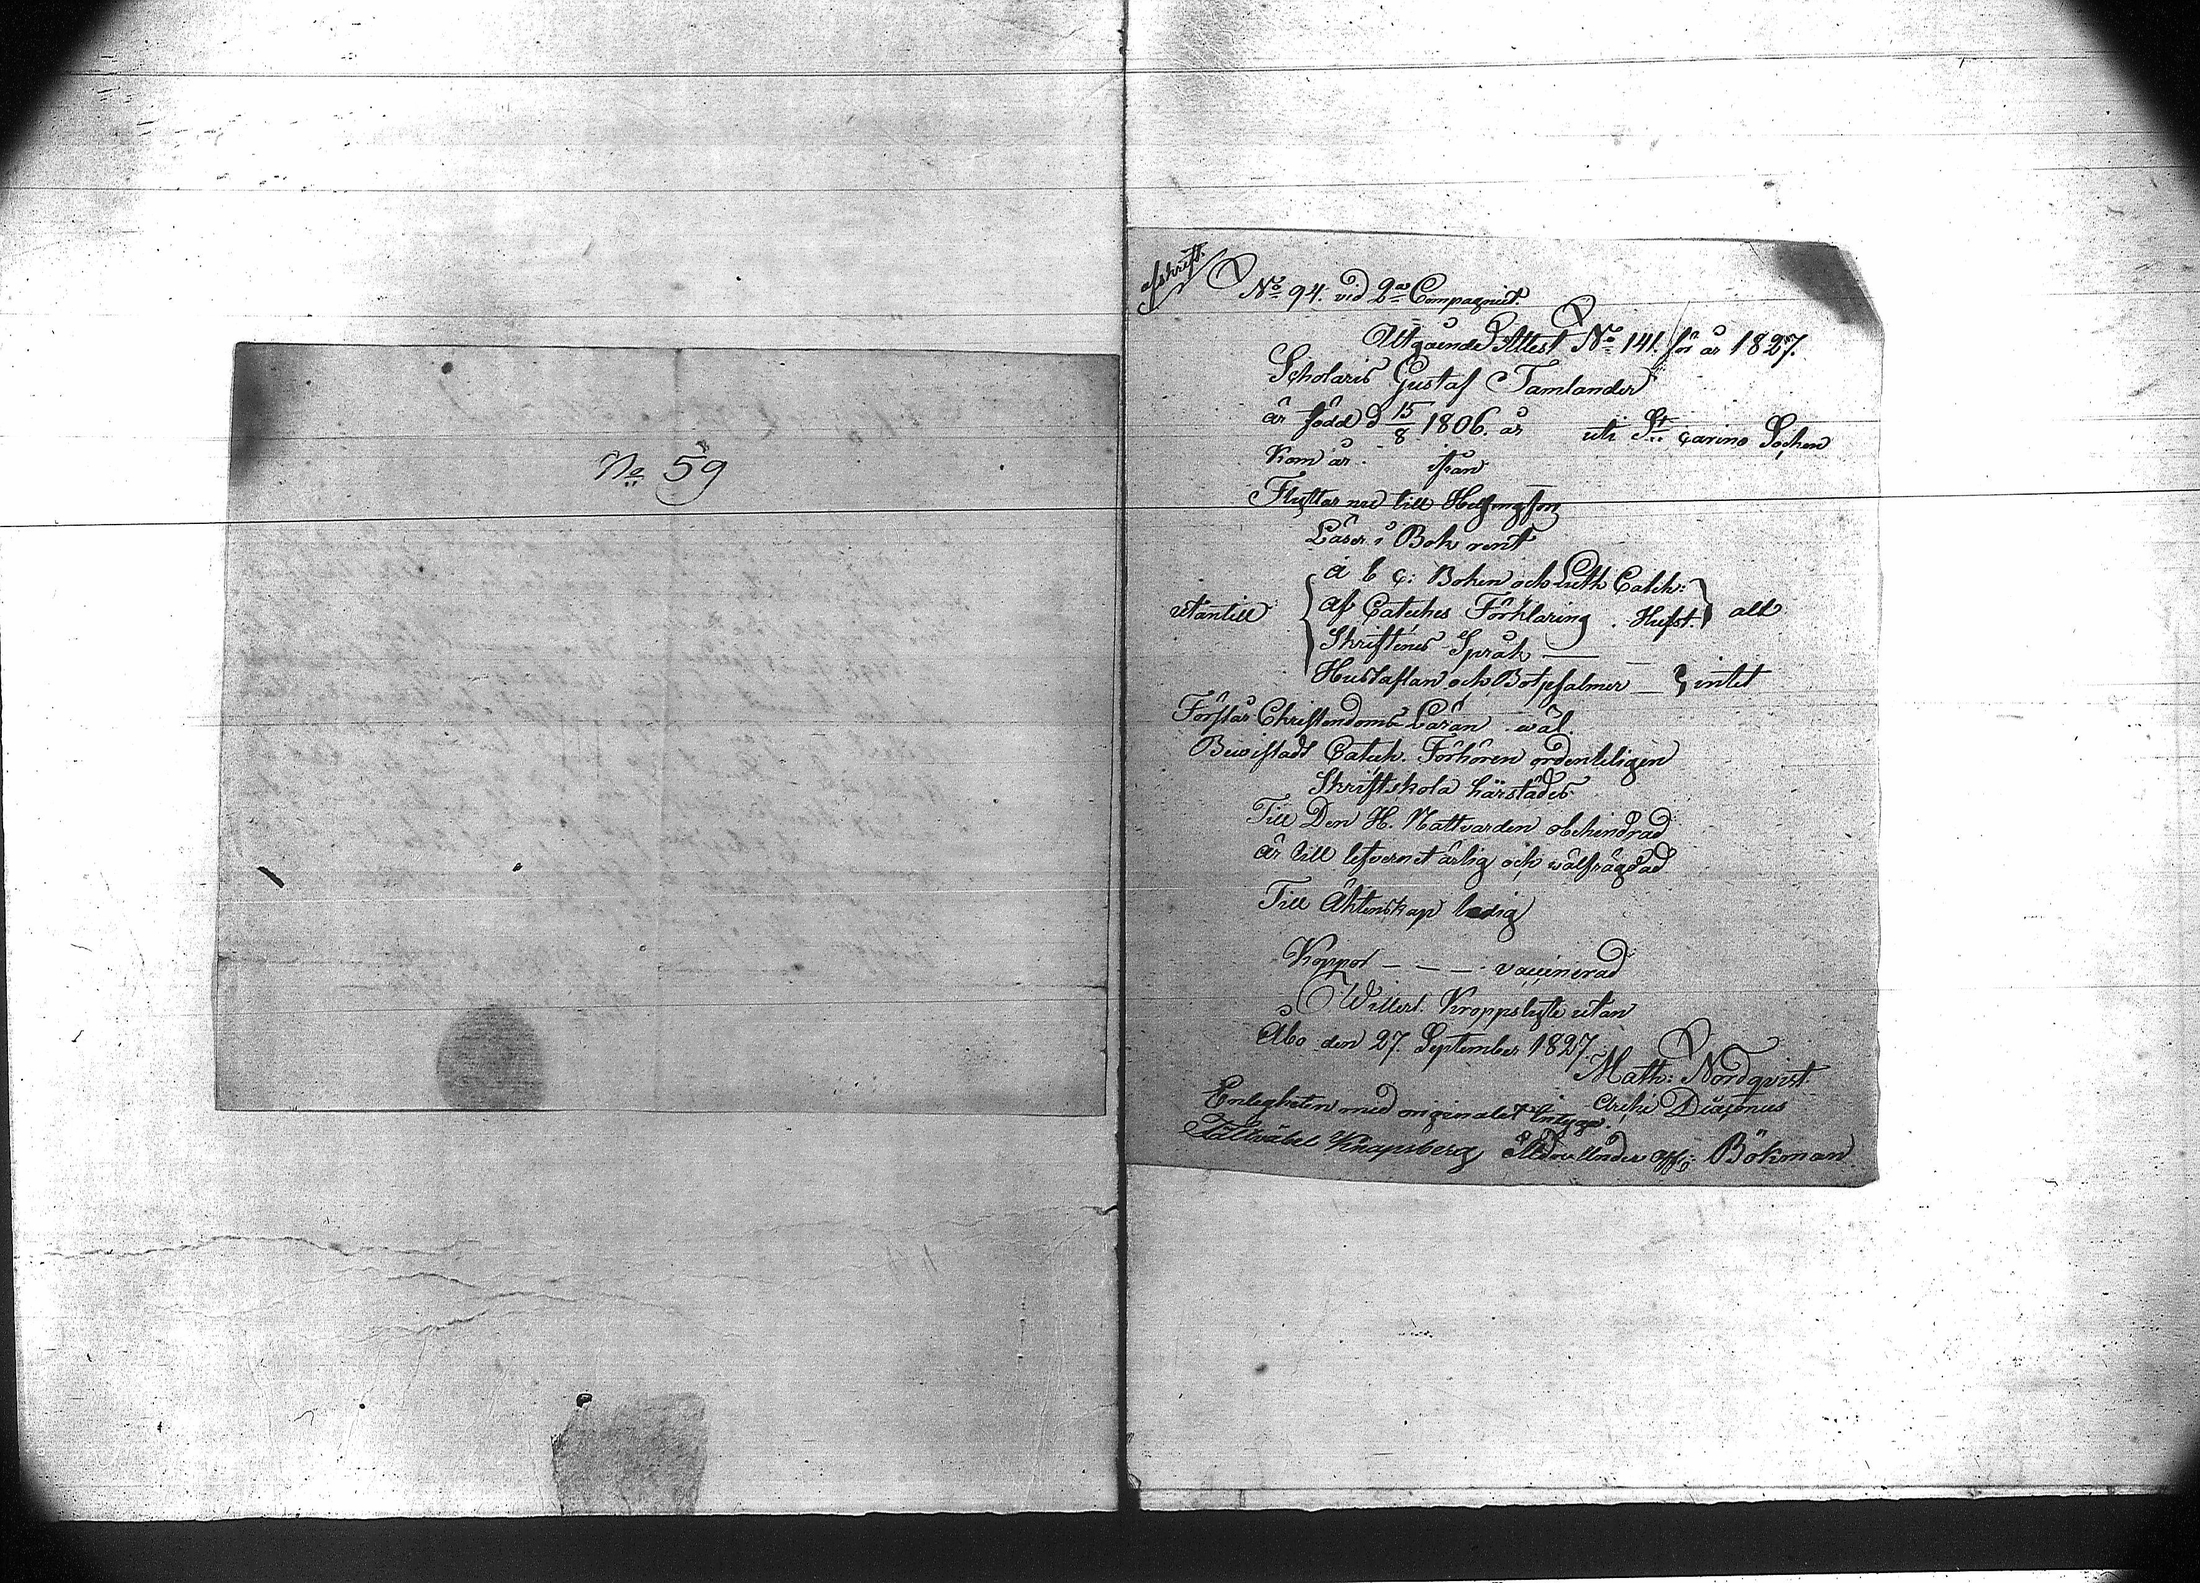 No 59
afskrift.
No 94. vid 2a Compagniet.
Utgående Attest No 141. för år 1827.
Scholaris Gustaf Tamlander
är född d 15/8 1806. år uti St. Carins Sochen
Kom år ifrån
Flyttar nu till Helsingfors
Läser i Bok rent
utantill
a b c: Boken och Luth Catch:
af Catches Förklaring . Hufst. } alt
Skriftenes Språk —
Hustaflan och Botpsalmer — } intet
Förstår Christendoms Läran wäl.
Bewistadt Catech. Förhören ordenteligen
Skriftskola härstädes
Till Den H. Nattvarden obehindrad
är till lefvernet ärlig och wälfrägdad
Till Äktenskap ledig
Koppor — — — vaccinerad
Kroppslyte utan
Åbo den 27. September 1827.
Math: Nordqvist.
Archi Diaconus
Enligheten med originalet
Fältväbel Knapsberg Under Off: Bökman